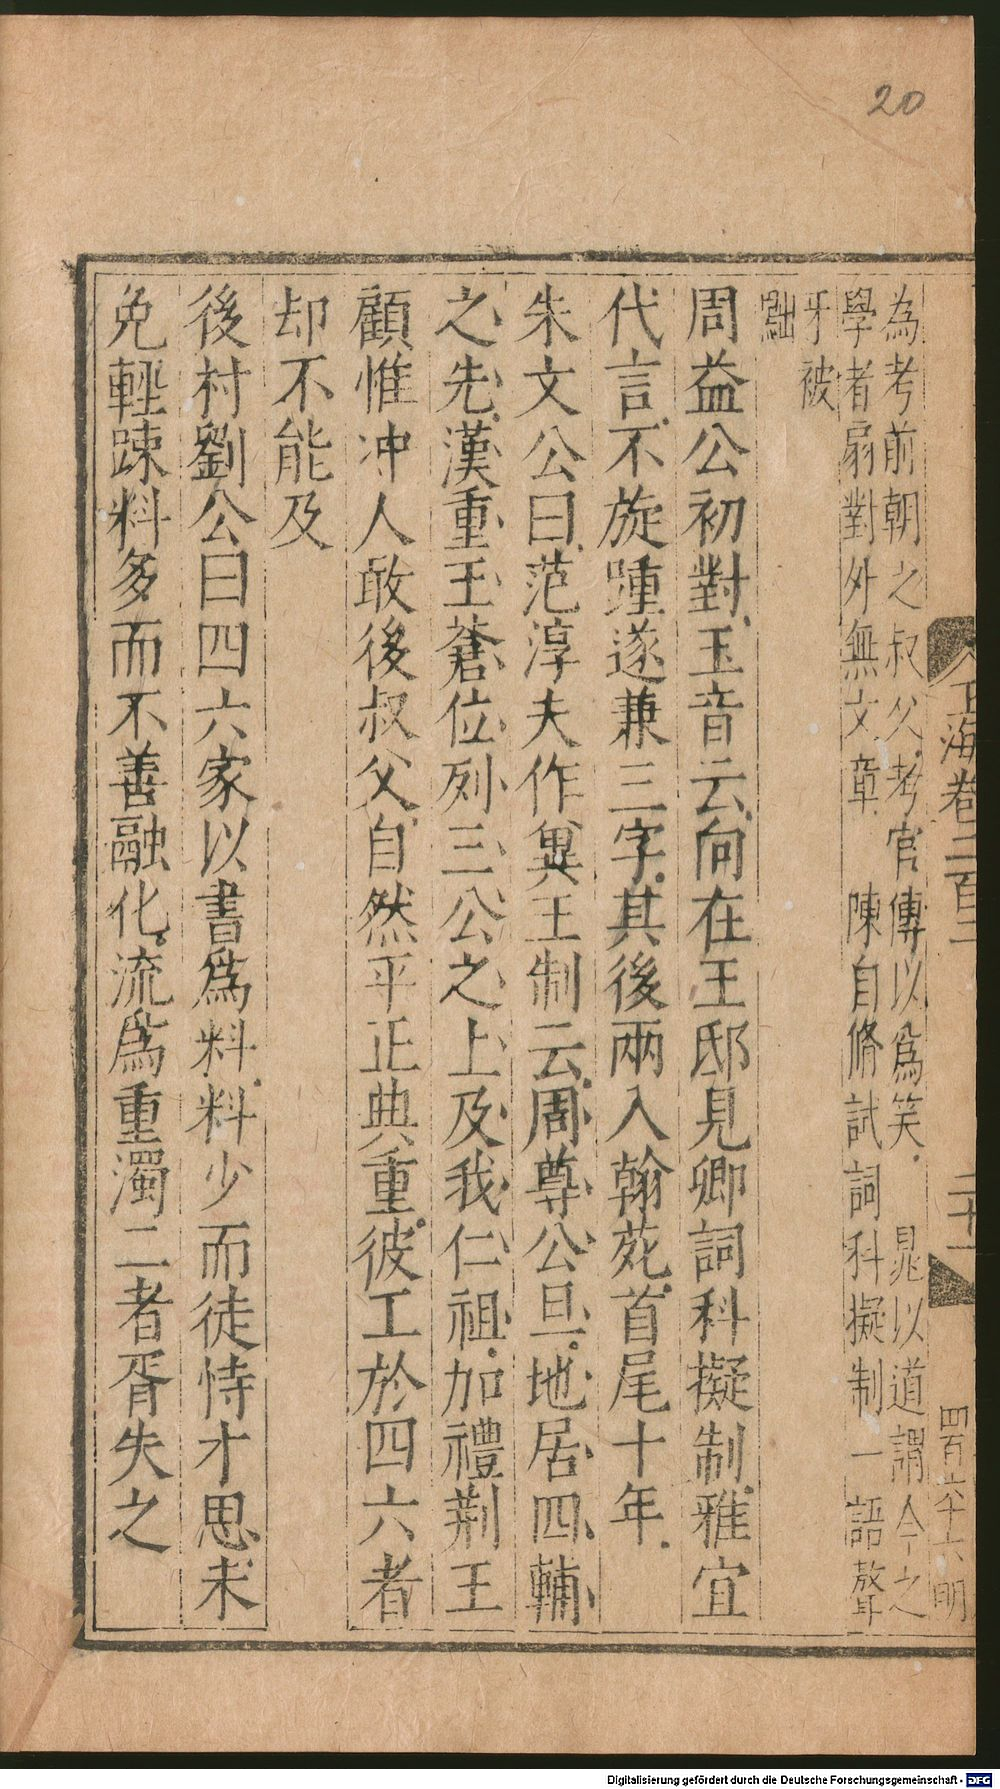 20
玉海卷二百三
二十一
四百六十六 明
為考前朝之叔父考官傳以爲笑 晁以道謂今之
學者扇對外無文章 陳自脩試詞科擬制一語聱
牙被
黜
周益公初對玉音云向在王邸見卿詞科擬制雅宜
代言不旋踵遂兼三字其後兩入翰苑首尾十年
朱文公曰范淳夫作兾王制云周尊公旦地居四輔
之先漢重王蒼位列三公之上及我仁祖加禮荆王
顧惟冲人敢後叔父自然平正典重彼工於四六者
却不能及
後村劉公曰四六家以書爲料料少而徒恃才思未
免輕踈料多而不善融化流爲重濁二者胥失之
Digitalisierung gefördert durch die Deutsche Forschungsgemeinschaft - DFG